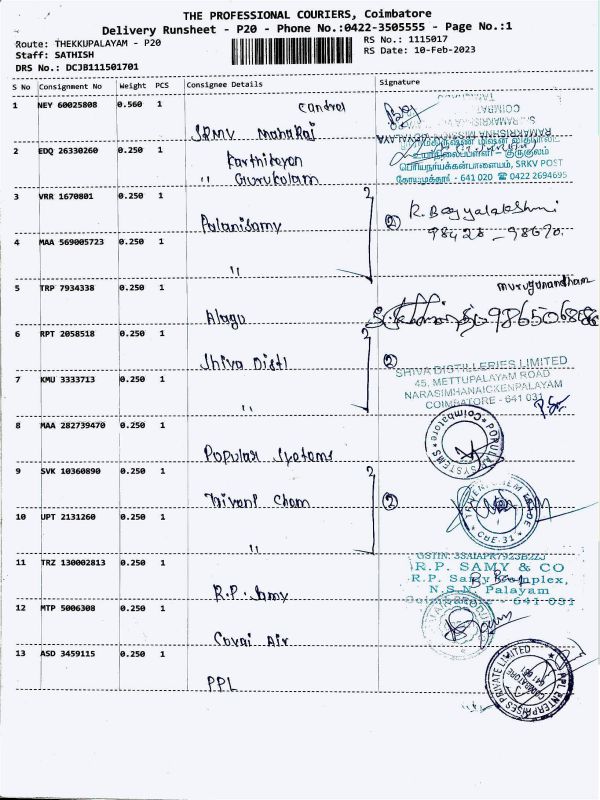 THE PROFESSIONAL COURIERS, Coimbatore
Delivery Runsheet - P20 - Phone No.:0422-3505555 - Page No.:1
Route: THEKKUPALAYAM - P20
RS No.: 1115017
Staff: SATHISH
RS Date: 10-Feb-2023
DRS No.: DCJB111501701
S No Consignment No Weight PCS Consignee Details Signature
1 NEY 60025808 0.560 1
Control
SRMV Maharaj
COIMBATORE
2 EDQ 26330260 0.250 1
Karthikeyan
" Gurukulam
பெரியநாயக்கன்பாளையம், SRKV POST
கோயமுத்தூர் - 641 020 ☎ 0422 2694695
3 VRR 1670801 0.250 1
Palanisamy
2
R. Bagyalakshmi
98428 - 98670
4 MAA 569005723 0.250 1
"
5 TRP 7934338 0.250 1
Murugunandham
Alagu
9865068686
6 RPT 2058518 0.250 1
Shiva Distl
2
SHIVA DISTILLERIES LIMITED
45, METTUPALAYAM ROAD
NARASIMHANAICKENPALAYAM
COIMBATORE - 641 031
7 KMU 3333713 0.250 1
"
8 MAA 282739470 0.250 1
Popular Systems
POPULAR SYSTEMS * Coimbatore *
9 SVK 10360890 0.250 1
Triveni Chem
2
CBE-31
10 UPT 2131260 0.250 1
"
11 TRZ 130002813 0.250 1
R.P. Samy
R.P. SAMY & CO
R.P. Samy Complex,
N.S.N. Palayam
Coimbatore - 641 031
12 MTP 5006308 0.250 1
Covai Air
13 ASD 3459115 0.250 1
PPL
PPL ENTERPRISES PRIVATE LIMITED
COIMBATORE
641 031